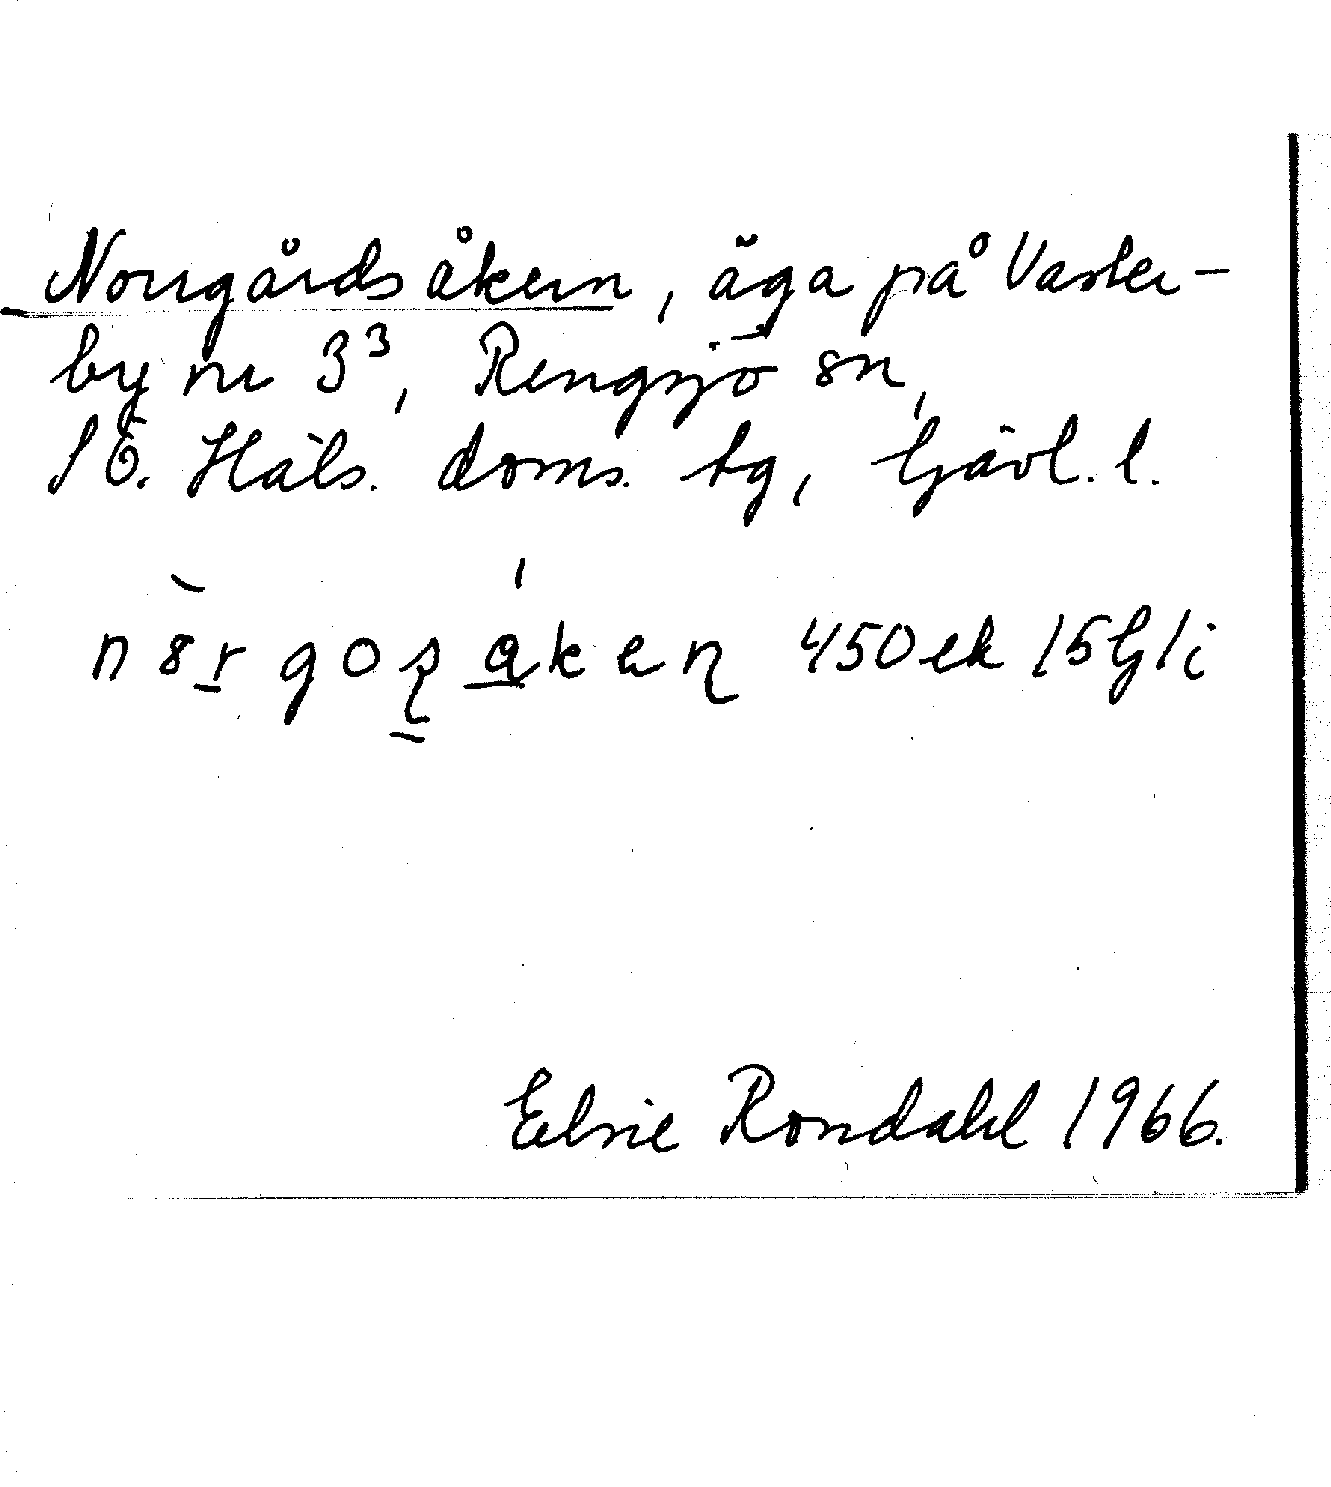 Norrgårdsåkern, äga på Väster-
by nr 3³, Rengsjö sn,
SÖ. Häls. doms. tg, Gävl. l.
450 ek 15 G/i
Elsie Rondahl 1966.